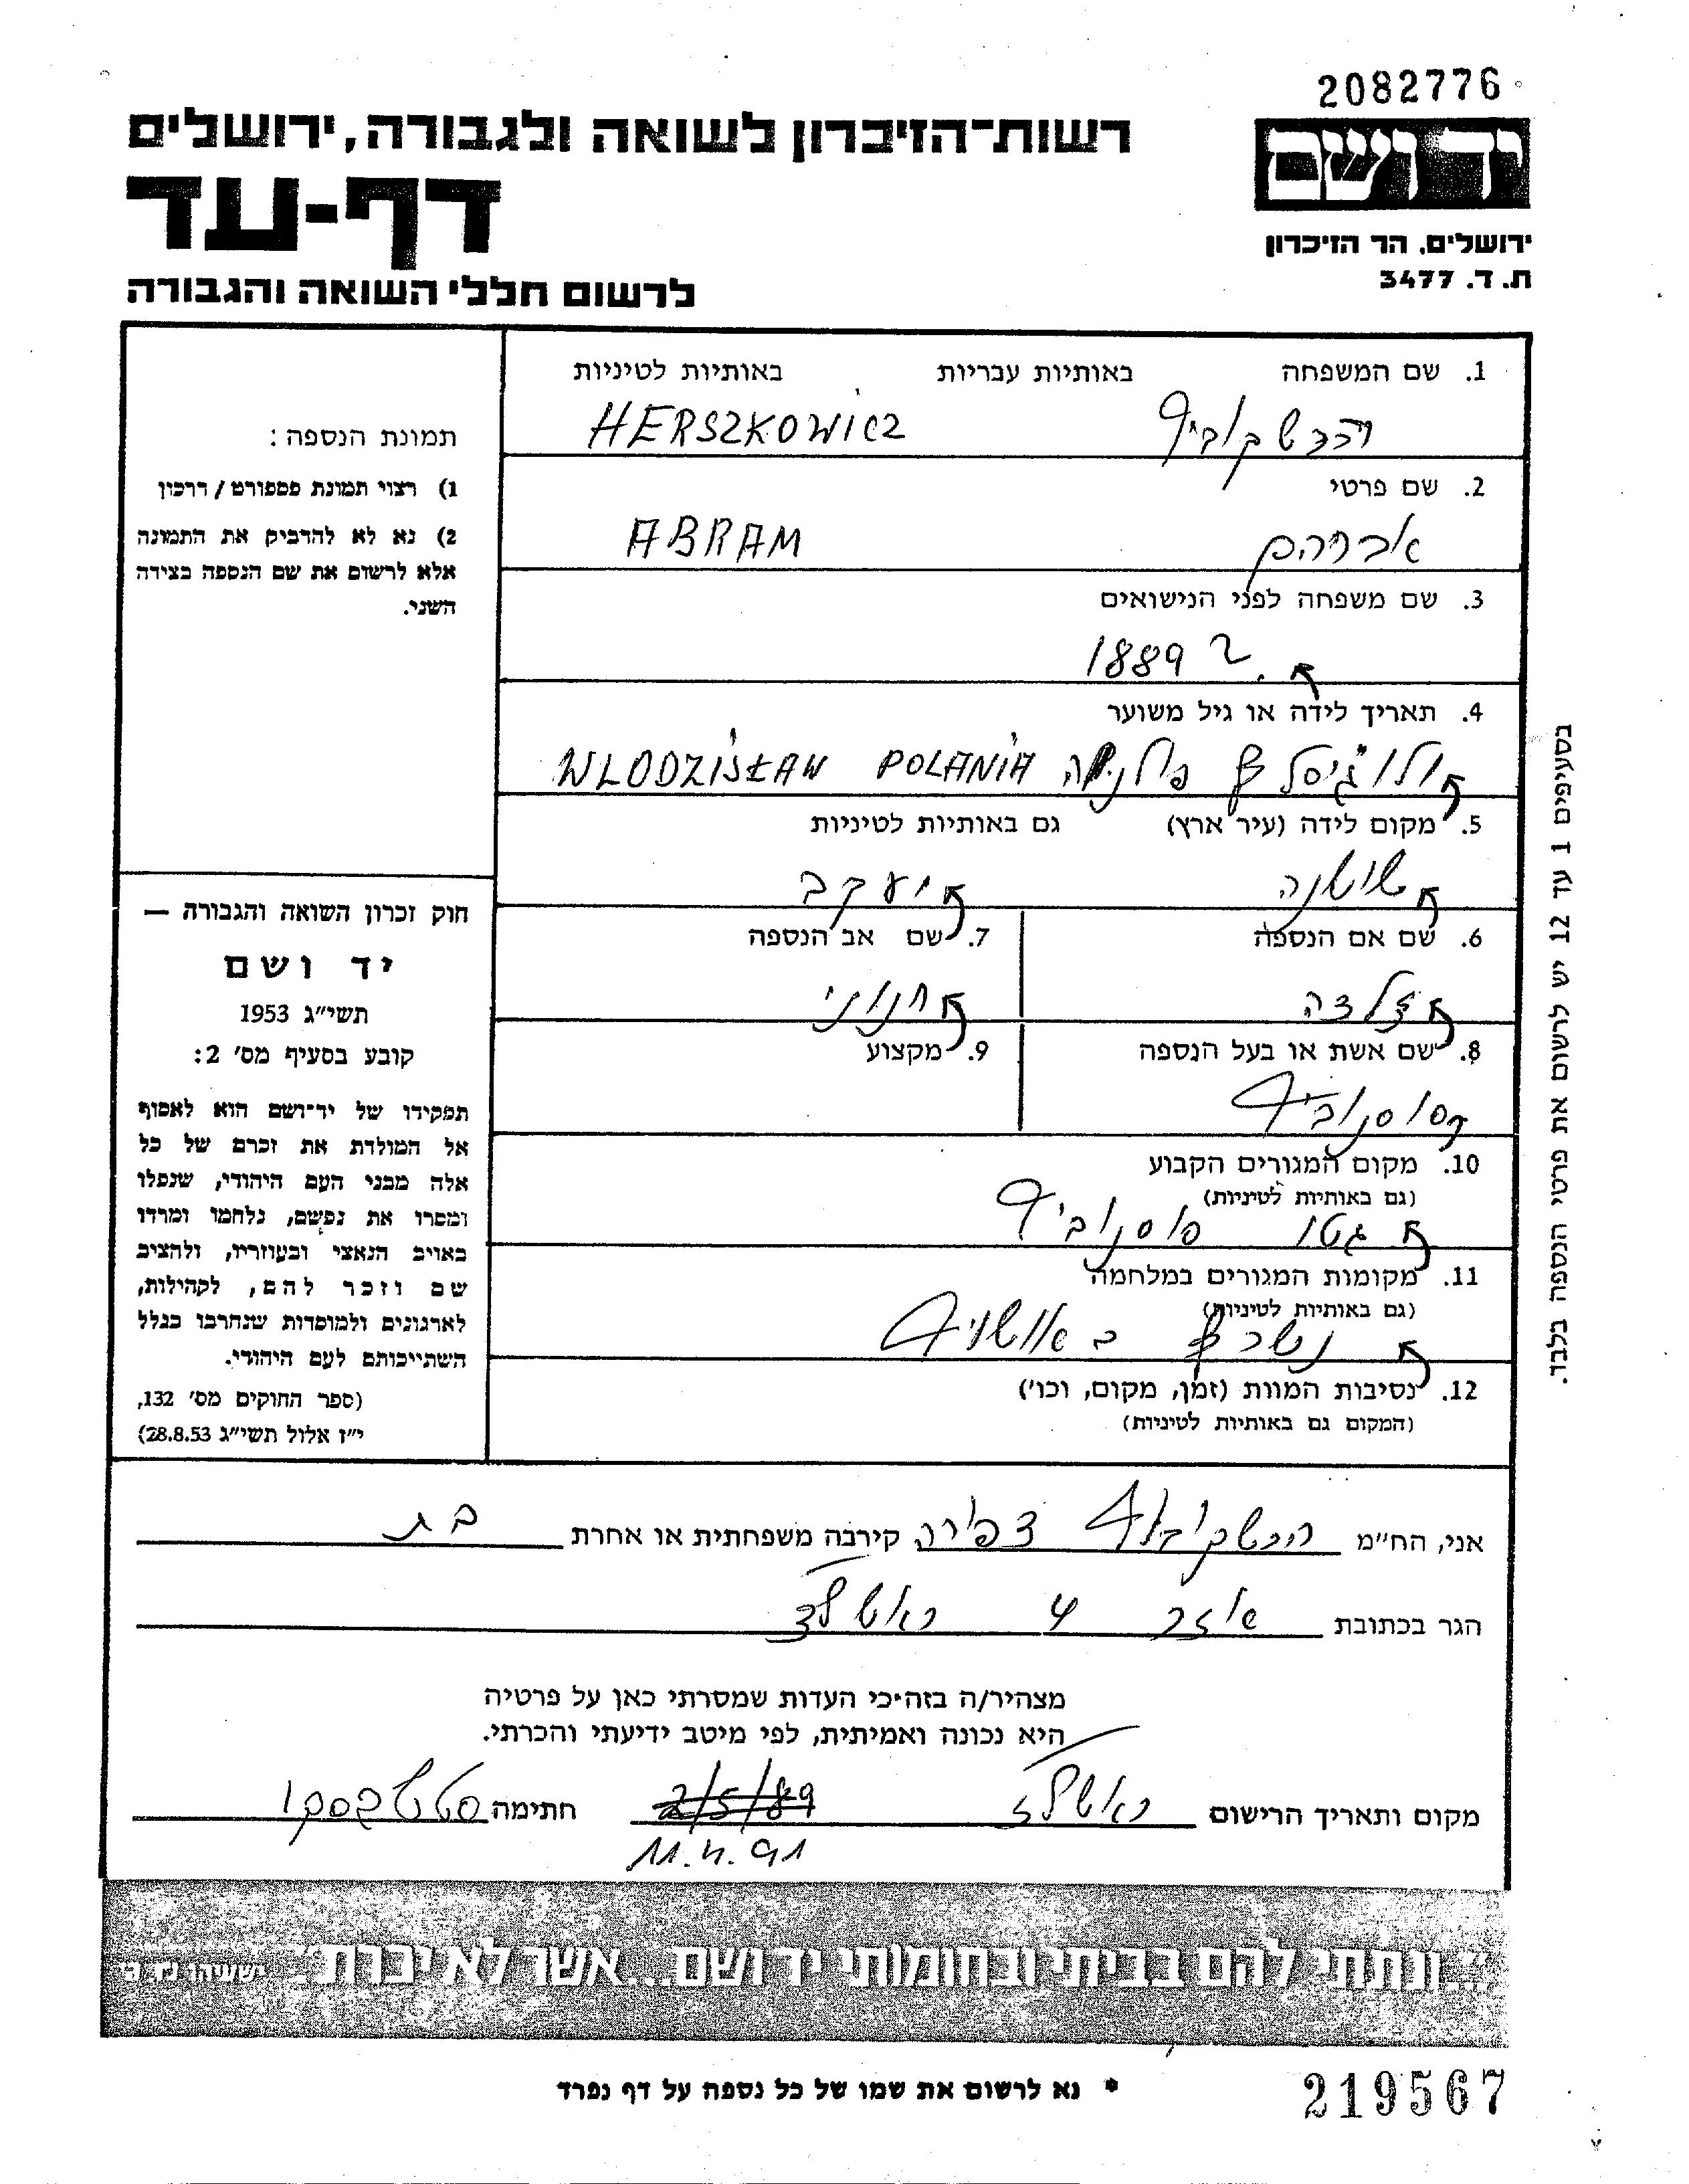 2082776
יד ושם
רשות־הזיכרון לשואה ולגבורה, ירושלים
דף-עד
ירושלים, הר הזיכרון
ת. ד. 3477
לרשום חללי השואה והגבורה
1. שם המשפחה באותיות עבריות באותיות לטיניות
הרשקוביץ HERSZKOWICZ
2. שם פרטי
אברהם ABRAM
3. שם משפחה לפני הנישואים
1889
4. תאריך לידה או גיל משוער
פולניה WLODZISŁAW POLANIA
5. מקום לידה (עיר ארץ) גם באותיות לטיניות
שושנה יעקב
6. שם אם הנספה 7. שם אב הנספה
זלדה חנוני
8. שם אשת או בעל הנספה 9. מקצוע
סוסנוביץ
10. מקום המגורים הקבוע
(גם באותיות לטיניות)
גטו סוסנוביץ
11. מקומות המגורים במלחמה
(גם באותיות לטיניות)
נשרף באושויץ
12. נסיבות המוות (זמן, מקום, וכו')
(המקום גם באותיות לטיניות)
תמונת הנספה:
1) רצוי תמונת פספורט / דרכון
2) נא לא להדביק את התמונה
אלא לרשום את שם הנספה בצידה
השני.
חוק זכרון השואה והגבורה —
יד ושם
תשי״ג 1953
קובע בסעיף מס' 2:
תפקידו של יד־ושם הוא לאסוף
אל המולדת את זכרם של כל
אלה מבני העם היהודי, שנפלו
ומסרו את נפשם, נלחמו ומרדו
באויב הנאצי ובעוזריו, ולהציב
שם וזכר להם, לקהילות,
לארגונים ולמוסדות שנחרבו בגלל
השתייכותם לעם היהודי.
(ספר החוקים מס' 132,
י״ז אלול תשי״ג 28.8.53)
בסעיפים 1 עד 12 יש לרשום את פרטי הנספה בלבד.
אני, הח״מ הרשקוביץ צפירה קירבה משפחתית או אחרת בת
הגר בכתובת 4 ראשלצ
מצהיר/ה בזה כי העדות שמסרתי כאן על פרטיה
היא נכונה ואמיתית, לפי מיטב ידיעתי והכרתי.
מקום ותאריך הרישום ראשלצ 2/5/89 חתימה
11.4.91
״...ונתתי להם בביתי ובחומותי יד ושם...אשר לא יכרת״ ישעיהו נו, ה'
* נא לרשום את שמו של כל נספה על דף נפרד
219567